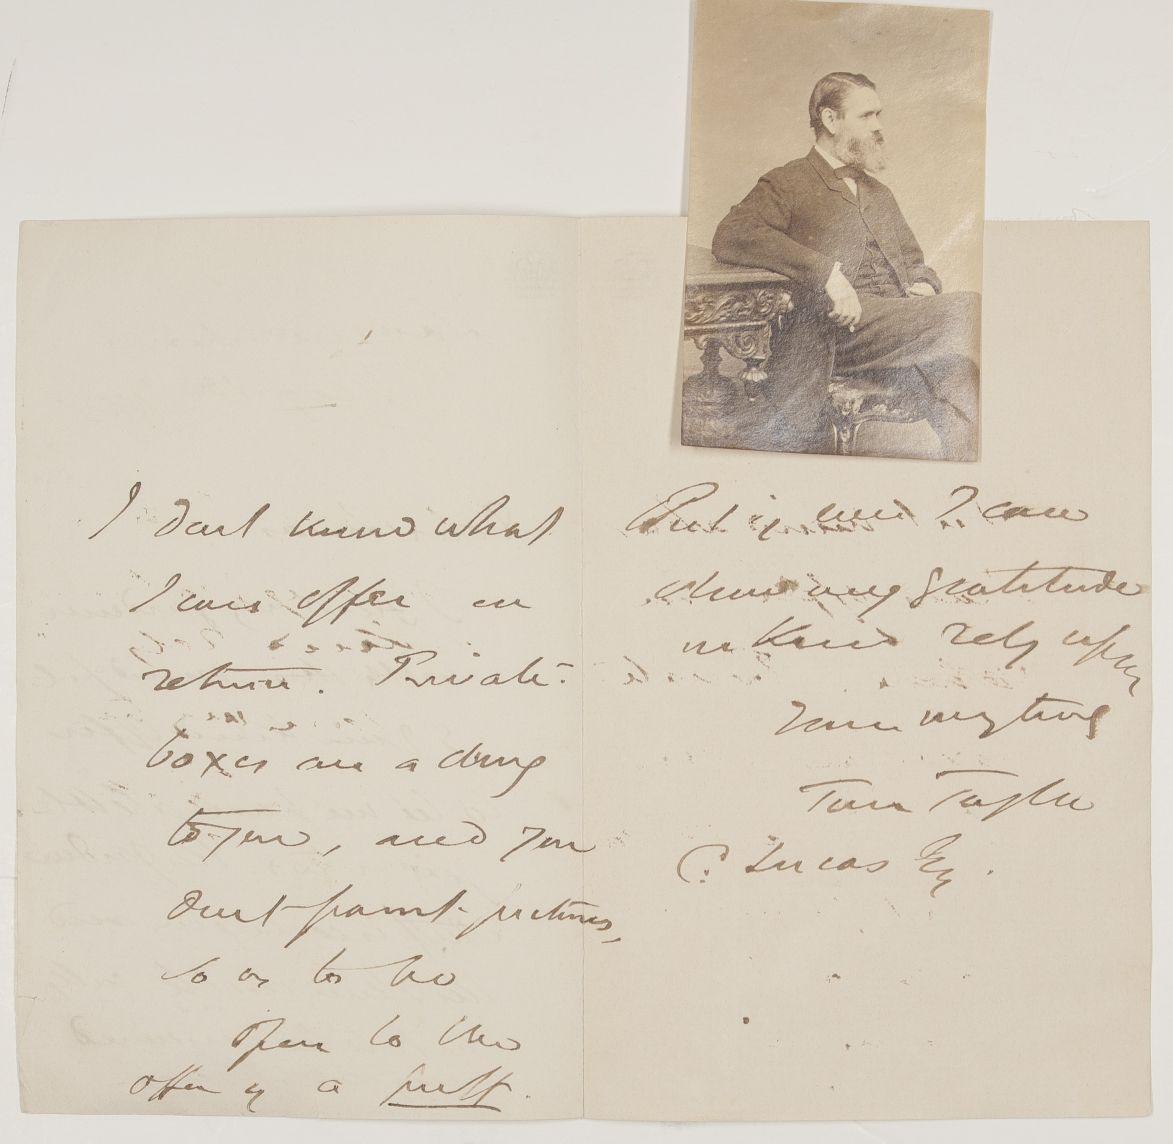 I dont know what
I can offer in
return. Private
boxes are a drug
to you, and you
dont paint pictures,
so as to be
open to the
offer of a puff.
But if ever I can
show my gratitude
in kind rely upon
Yours very truly
Tom Taylor
C. Lucas Esq.